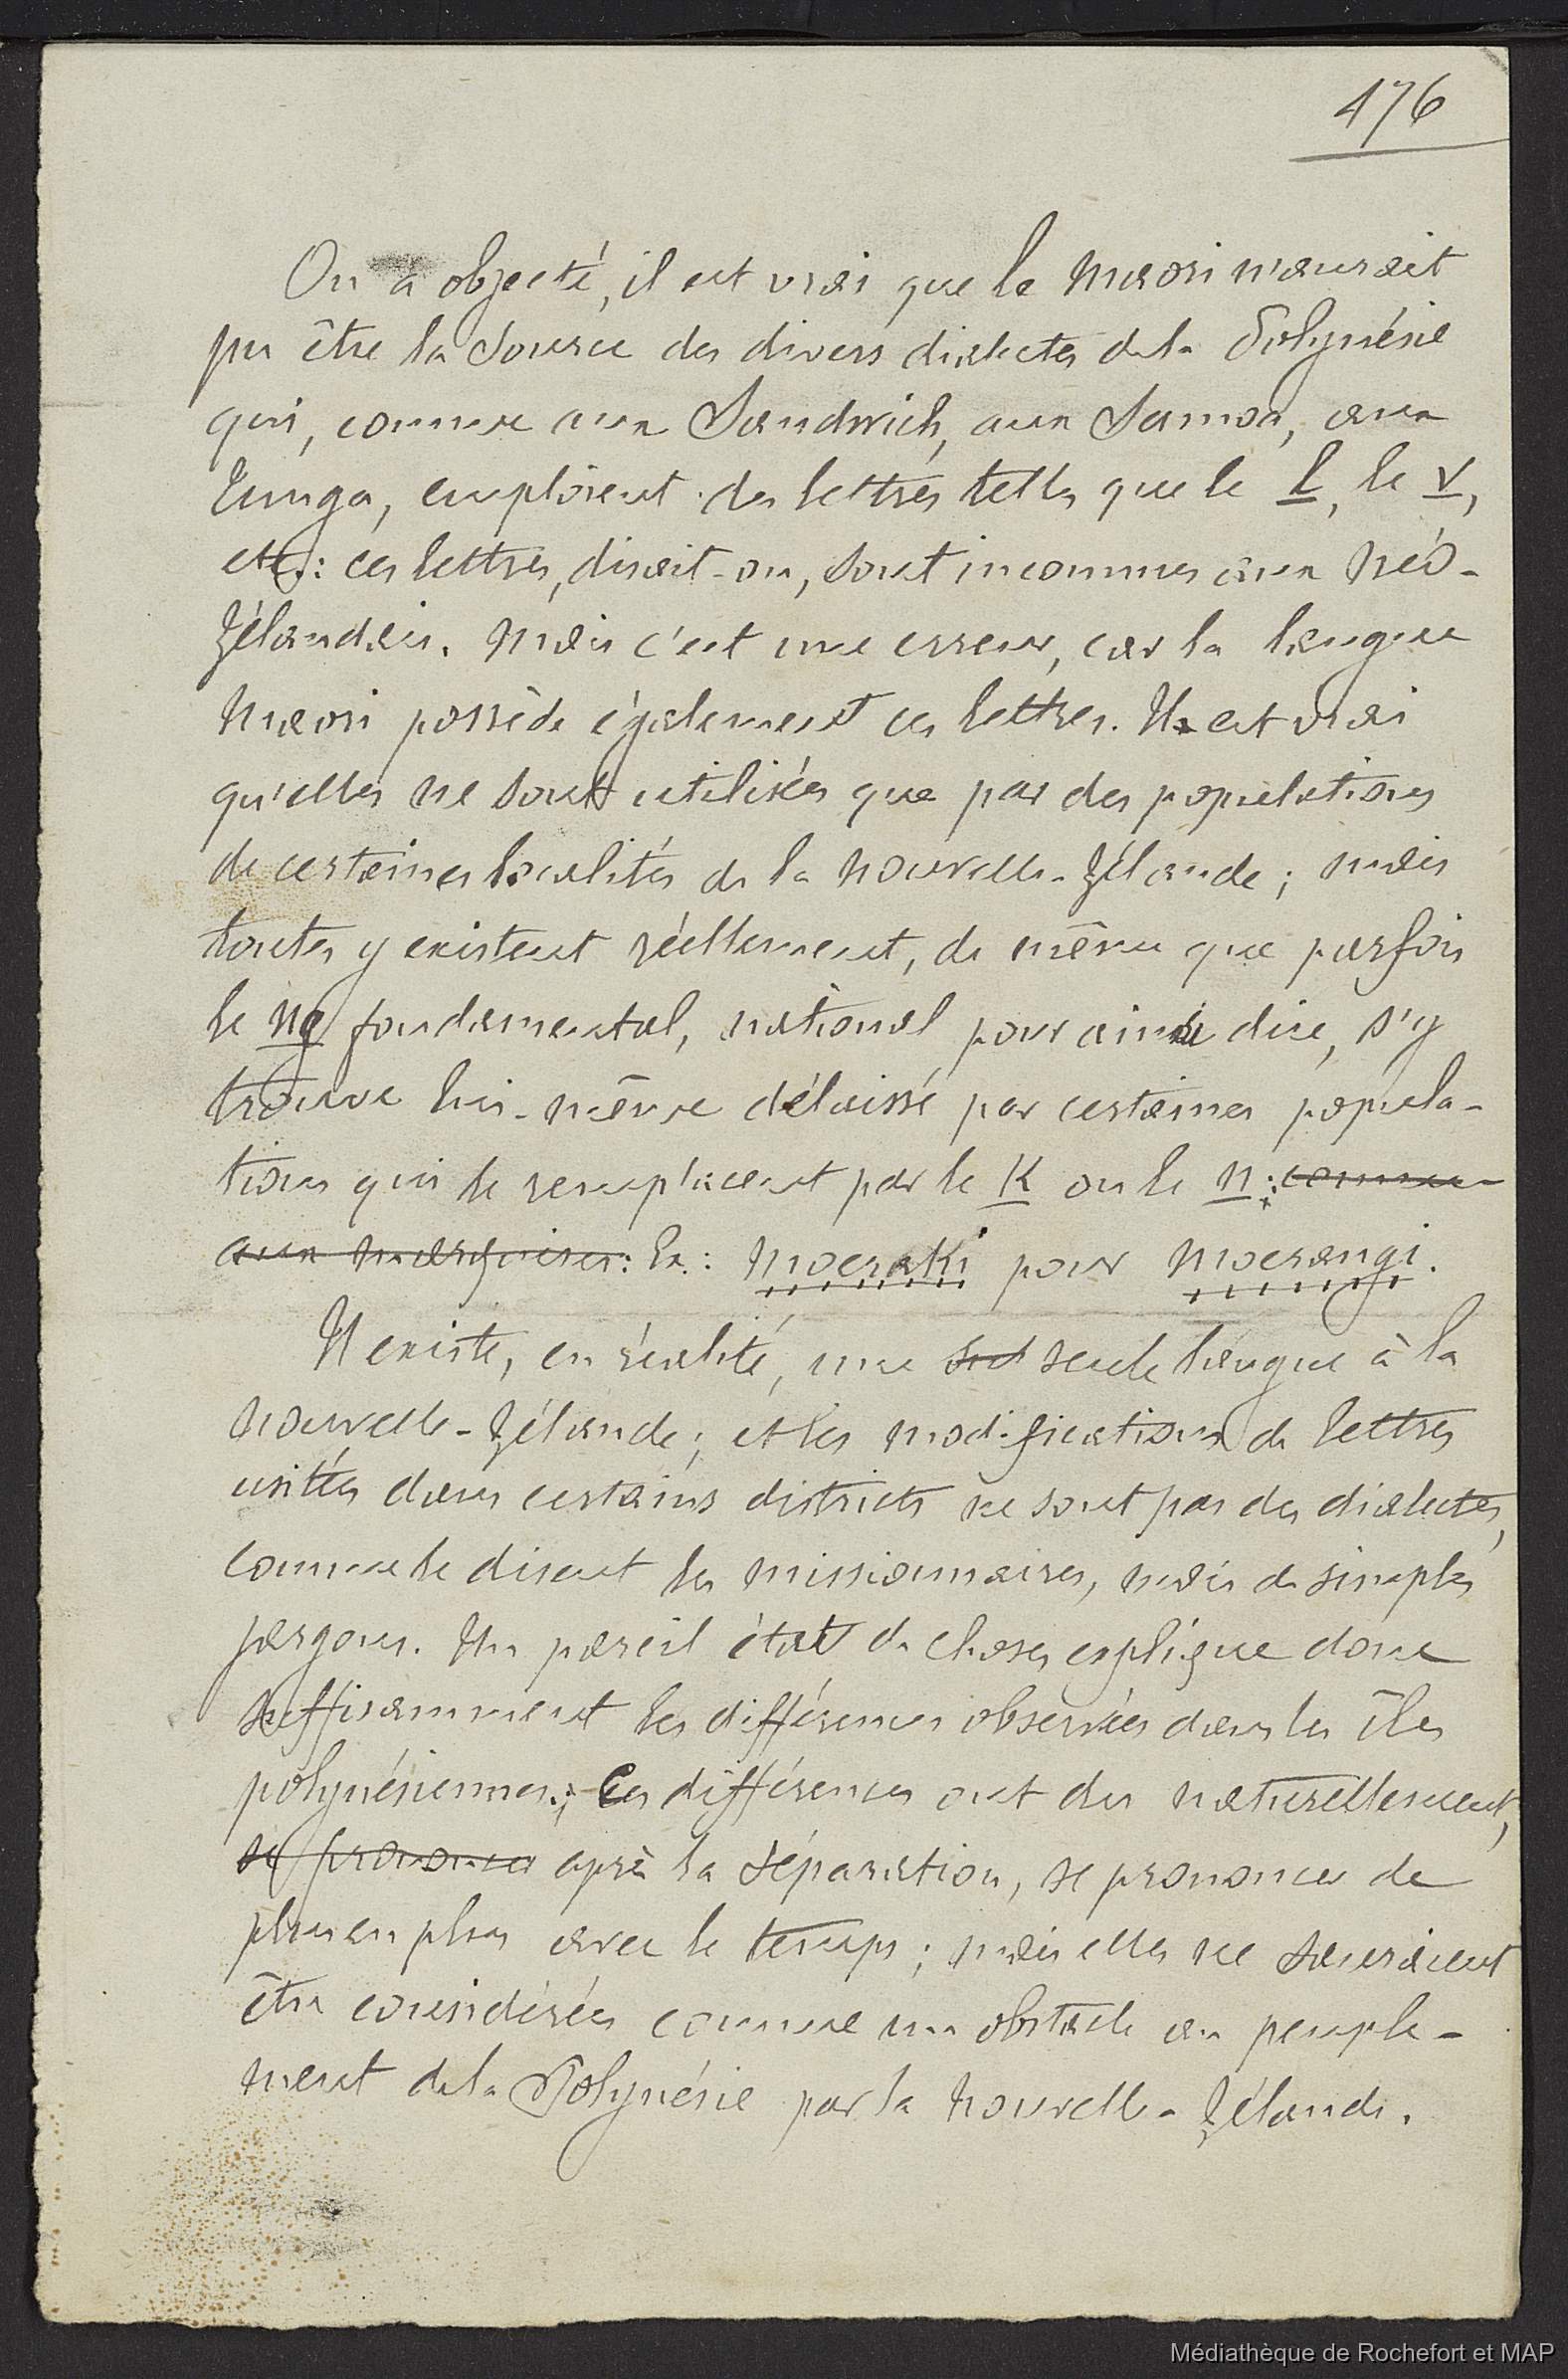 476
On a objecté, il est vrai que le Maori n'aurait
pu être la source des divers dialectes de la Polynésie
qui, comme aux Sandwich, aux Samoa, aux
Tunga, emploient des lettres telles que le l, le v,
etc: ces lettres, disait-on, sont inconnues aux Néo-
Zélandais. Mais c'est une erreur, car la langue
Maori possède également ces lettres. Il est vrai
qu'elles ne sont utilisées que par des populations
de certaines localités de la Nouvelle-Zélande; mais
toutes y existent réellement, de même que parfois
le ng fondamental, national pour ainsi dire, s'y
trouve lui-même délaissé par certaines popula-
tions qui le remplacent par le K ou le n: comme
aux Marquises: Ex.: Moeraki pour Moerangi.
Il existe, en réalité, une seul seule langue à la
Nouvelle-Zélande; et les modifications de lettres
usitées dans certains districts ne sont pas des dialectes,
comme le disent les missionnaires, mais de simples
jargons. Un pareil état de choses explique donc
suffisamment les différences observées dans les îles
polynésiennes; Ces différences ont du naturellement,
se prononcer après la séparation, se prononcer de
plus en plus avec le temps; mais elles ne sauraient
être considérées comme un obstacle au peuple-
ment de la Polynésie par la Nouvelle-Zélande.
Médiathèque de Rochefort et MAP